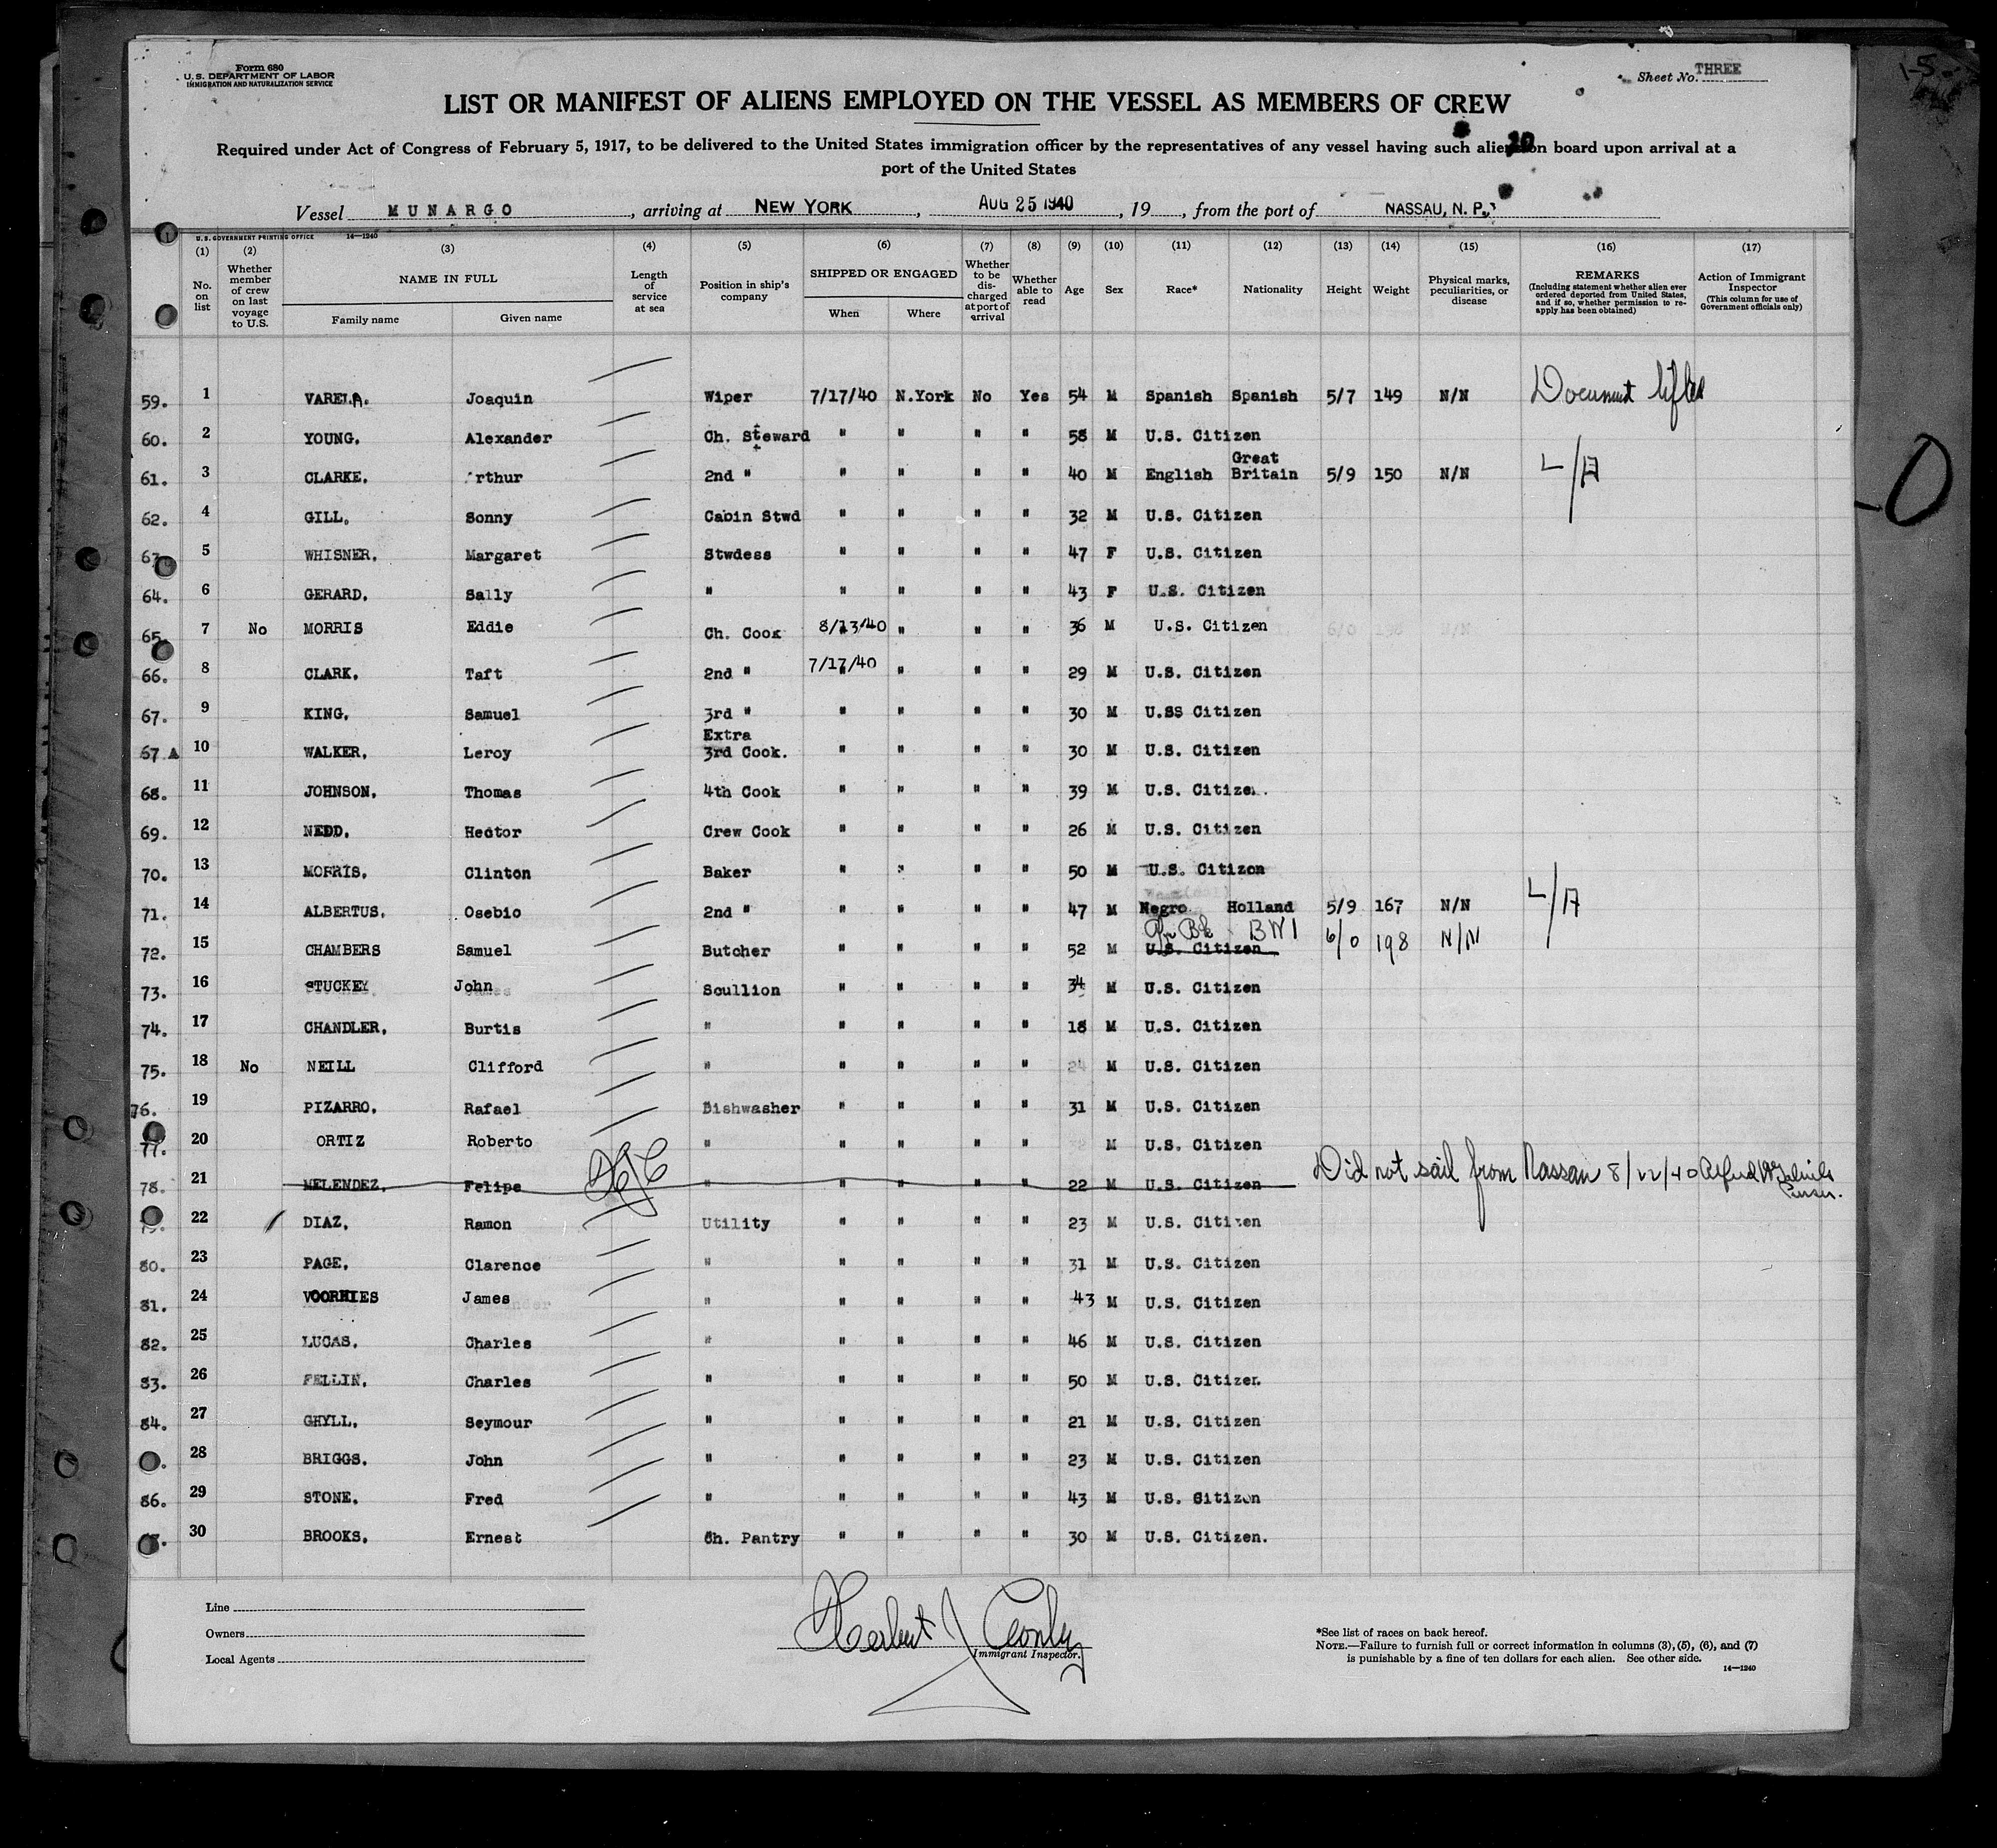 Form 680
U.S. DEPARTMENT OF LABOR
IMMIGRATION AND NATURALIZATION SERVICE
Sheet No. THREE
LIST OR MANIFEST OF ALIENS EMPLOYED ON THE VESSEL AS MEMBERS OF CREW
Required under Act of Congress of February 5, 1917, to be delivered to the United States immigration officer by the representatives of any vessel having such aliens on board upon arrival at a
port of the United States
Vessel MUNARGO, arriving at NEW YORK, AUG 25 1940, 19, from the port of NASSAU, N. P.
U.S. GOVERNMENT PRINTING OFFICE 14—1240
(1) (2) (3) (4) (5) (6) (7) (8) (9) (10) (11) (12) (13) (14) (15) (16) (17)
No. on list
Whether member of crew on last voyage to U.S.
NAME IN FULL
Family name Given name
Length of service at sea
Position in ship's company
SHIPPED OR ENGAGED
When Where
Whether to be discharged at port of arrival
Whether able to read
Age Sex Race* Nationality Height Weight
Physical marks, peculiarities, or disease
REMARKS
(Including statement whether alien ever ordered deported from United States, and if so, whether permission to reapply has been obtained)
Action of Immigrant Inspector
(This column for use of Government officials only)
59. 1 VARELA. Joaquin Wiper 7/17/40 N.York No Yes 54 M Spanish Spanish 5/7 149 N/N Document lifted
60. 2 YOUNG. Alexander Ch. Steward " " " " 58 M U.S. Citizen
61. 3 CLARKE. rthur 2nd " " " " " 40 M English Great Britain 5/9 150 N/N L/A
62. 4 GILL. Sonny Cabin Stwd " " " " 32 M U.S. Citizen
63. 5 WHISNER. Margaret Stwdess " " " " 47 F U.S. Citizen
64. 6 GERARD. Sally " " " " " 43 F U.S. Citizen
65. 7 No MORRIS Eddie Ch. Cook 8/13/40 " " " 36 M U.S. Citizen
66. 8 CLARK. Taft 2nd " 7/17/40 " " " 29 M U.S. Citizen
67. 9 KING. Samuel 3rd " " " " " 30 M U.SS Citizen
67 A 10 WALKER. Leroy Extra 3rd Cook. " " " " 30 M U.S. Citizen
68. 11 JOHNSON. Thomas 4th Cook " " " " 39 M U.S. Citize.
69. 12 NEDD. Hector Crew Cook " " " " 26 M U.S. Citizen
70. 13 MORRIS. Clinton Baker " " " " 50 M U.S. Citizen
71. 14 ALBERTUS. Osebio 2nd " " " " " 47 M Negro Holland 5/9 167 N/N L/A
72. 15 CHAMBERS Samuel Butcher " " " " 52 M U.S. Citizen Bk BWI 6/0 198 N/N
73. 16 STUCKEY John Scullion " " " " 34 M U.S. Citizen
74. 17 CHANDLER. Burtis " " " " " 18 M U.S. Citizen
75. 18 No NEILL Clifford " " " " " 24 M U.S. Citizen
76. 19 PIZARRO. Rafael Dishwasher " " " " 31 M U.S. Citizen
77. 20 ORTIZ Roberto " " " " " M U.S. Citizen
78. 21 MELENDEZ. Felipe " " " " " 22 M U.S. Citizen Did not sail from Nassau 8/22/40 Purser.
22 DIAZ. Ramon Utility " " " " 23 M U.S. Citizen
80. 23 PAGE. Clarence " " " " " 31 M U.S. Citizen
81. 24 VOORHIES James " " " " " 43 M U.S. Citizen
82. 25 LUCAS. Charles " " " " " 46 M U.S. Citizen
83. 26 FELLIN. Charles " " " " " 50 M U.S. Citizen
84. 27 GHYLL. Seymour " " " " " 21 M U.S. Citizen
28 BRIGGS. John " " " " " 23 M U.S. Citizen
86. 29 STONE. Fred " " " " " 43 M U.S. Citizen
30 BROOKS. Ernest Ch. Pantry " " " " 30 M U.S. Citizen.
Line
Owners
Local Agents
Herbert J Conly
Immigrant Inspector.
*See list of races on back hereof.
NOTE.—Failure to furnish full or correct information in columns (3), (5), (6), and (7)
is punishable by a fine of ten dollars for each alien. See other side.
14—1240